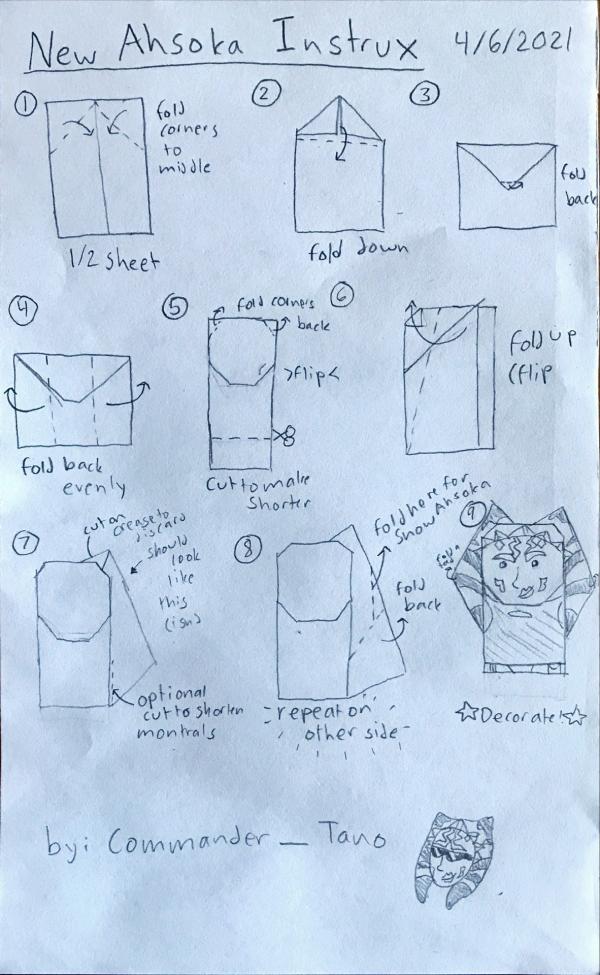 New Ahsoka Instrux 4/6/2021
1
fold
corners
to
middle
1/2 sheet
2
fold down
3
fold
back
4
fold back
evenly
5
fold corners
back
>flip<
Cut to make
Shorter
6
fold up
(flip
7
cut on
crease to
discard
should
look
like
this
(ish)
optional
cut to shorten
montrals
8
fold here for
Snow Ahsoka
fold
back
repeat on
other side
9
Decorate!
by: Commander_Tano